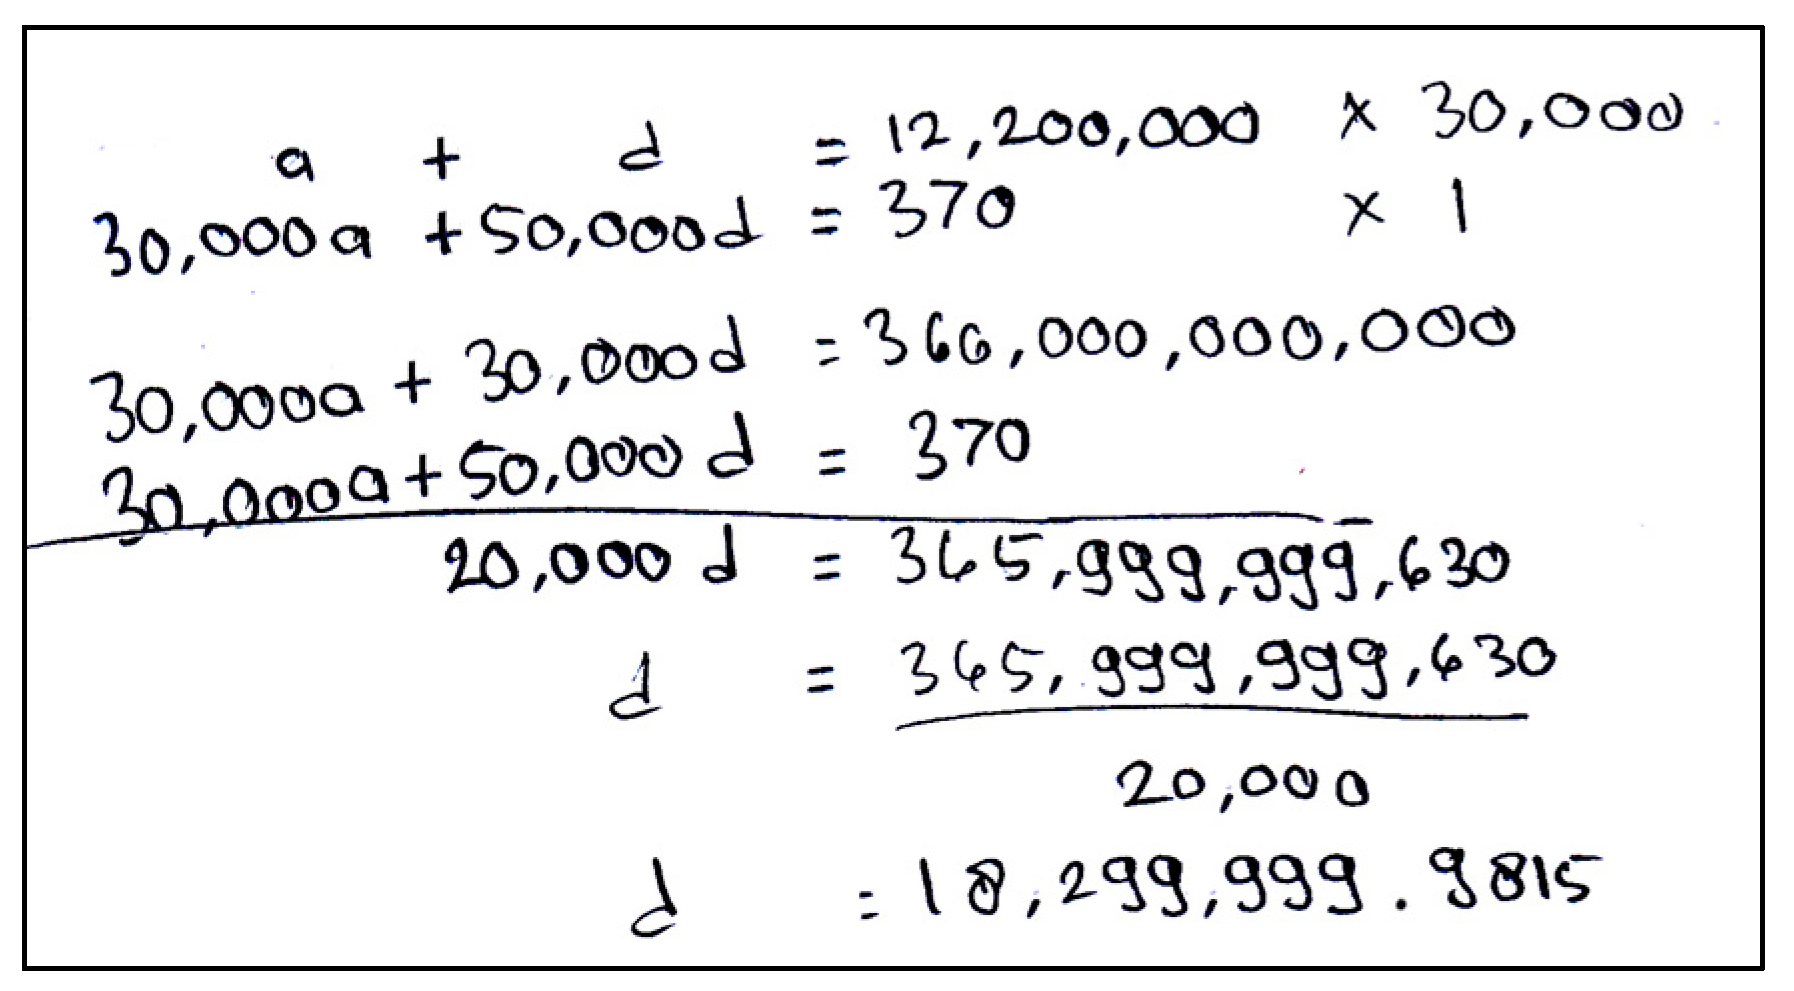 a + d = 12,200,000 × 30,000
30,000a + 50,000d = 370 × 1
30,000a + 30,000d = 366,000,000,000
30,000a + 50,000d = 370
20,000d = 365,999,999,630
d = 365,999,999,630
20,000
d = 18,299,999.9815